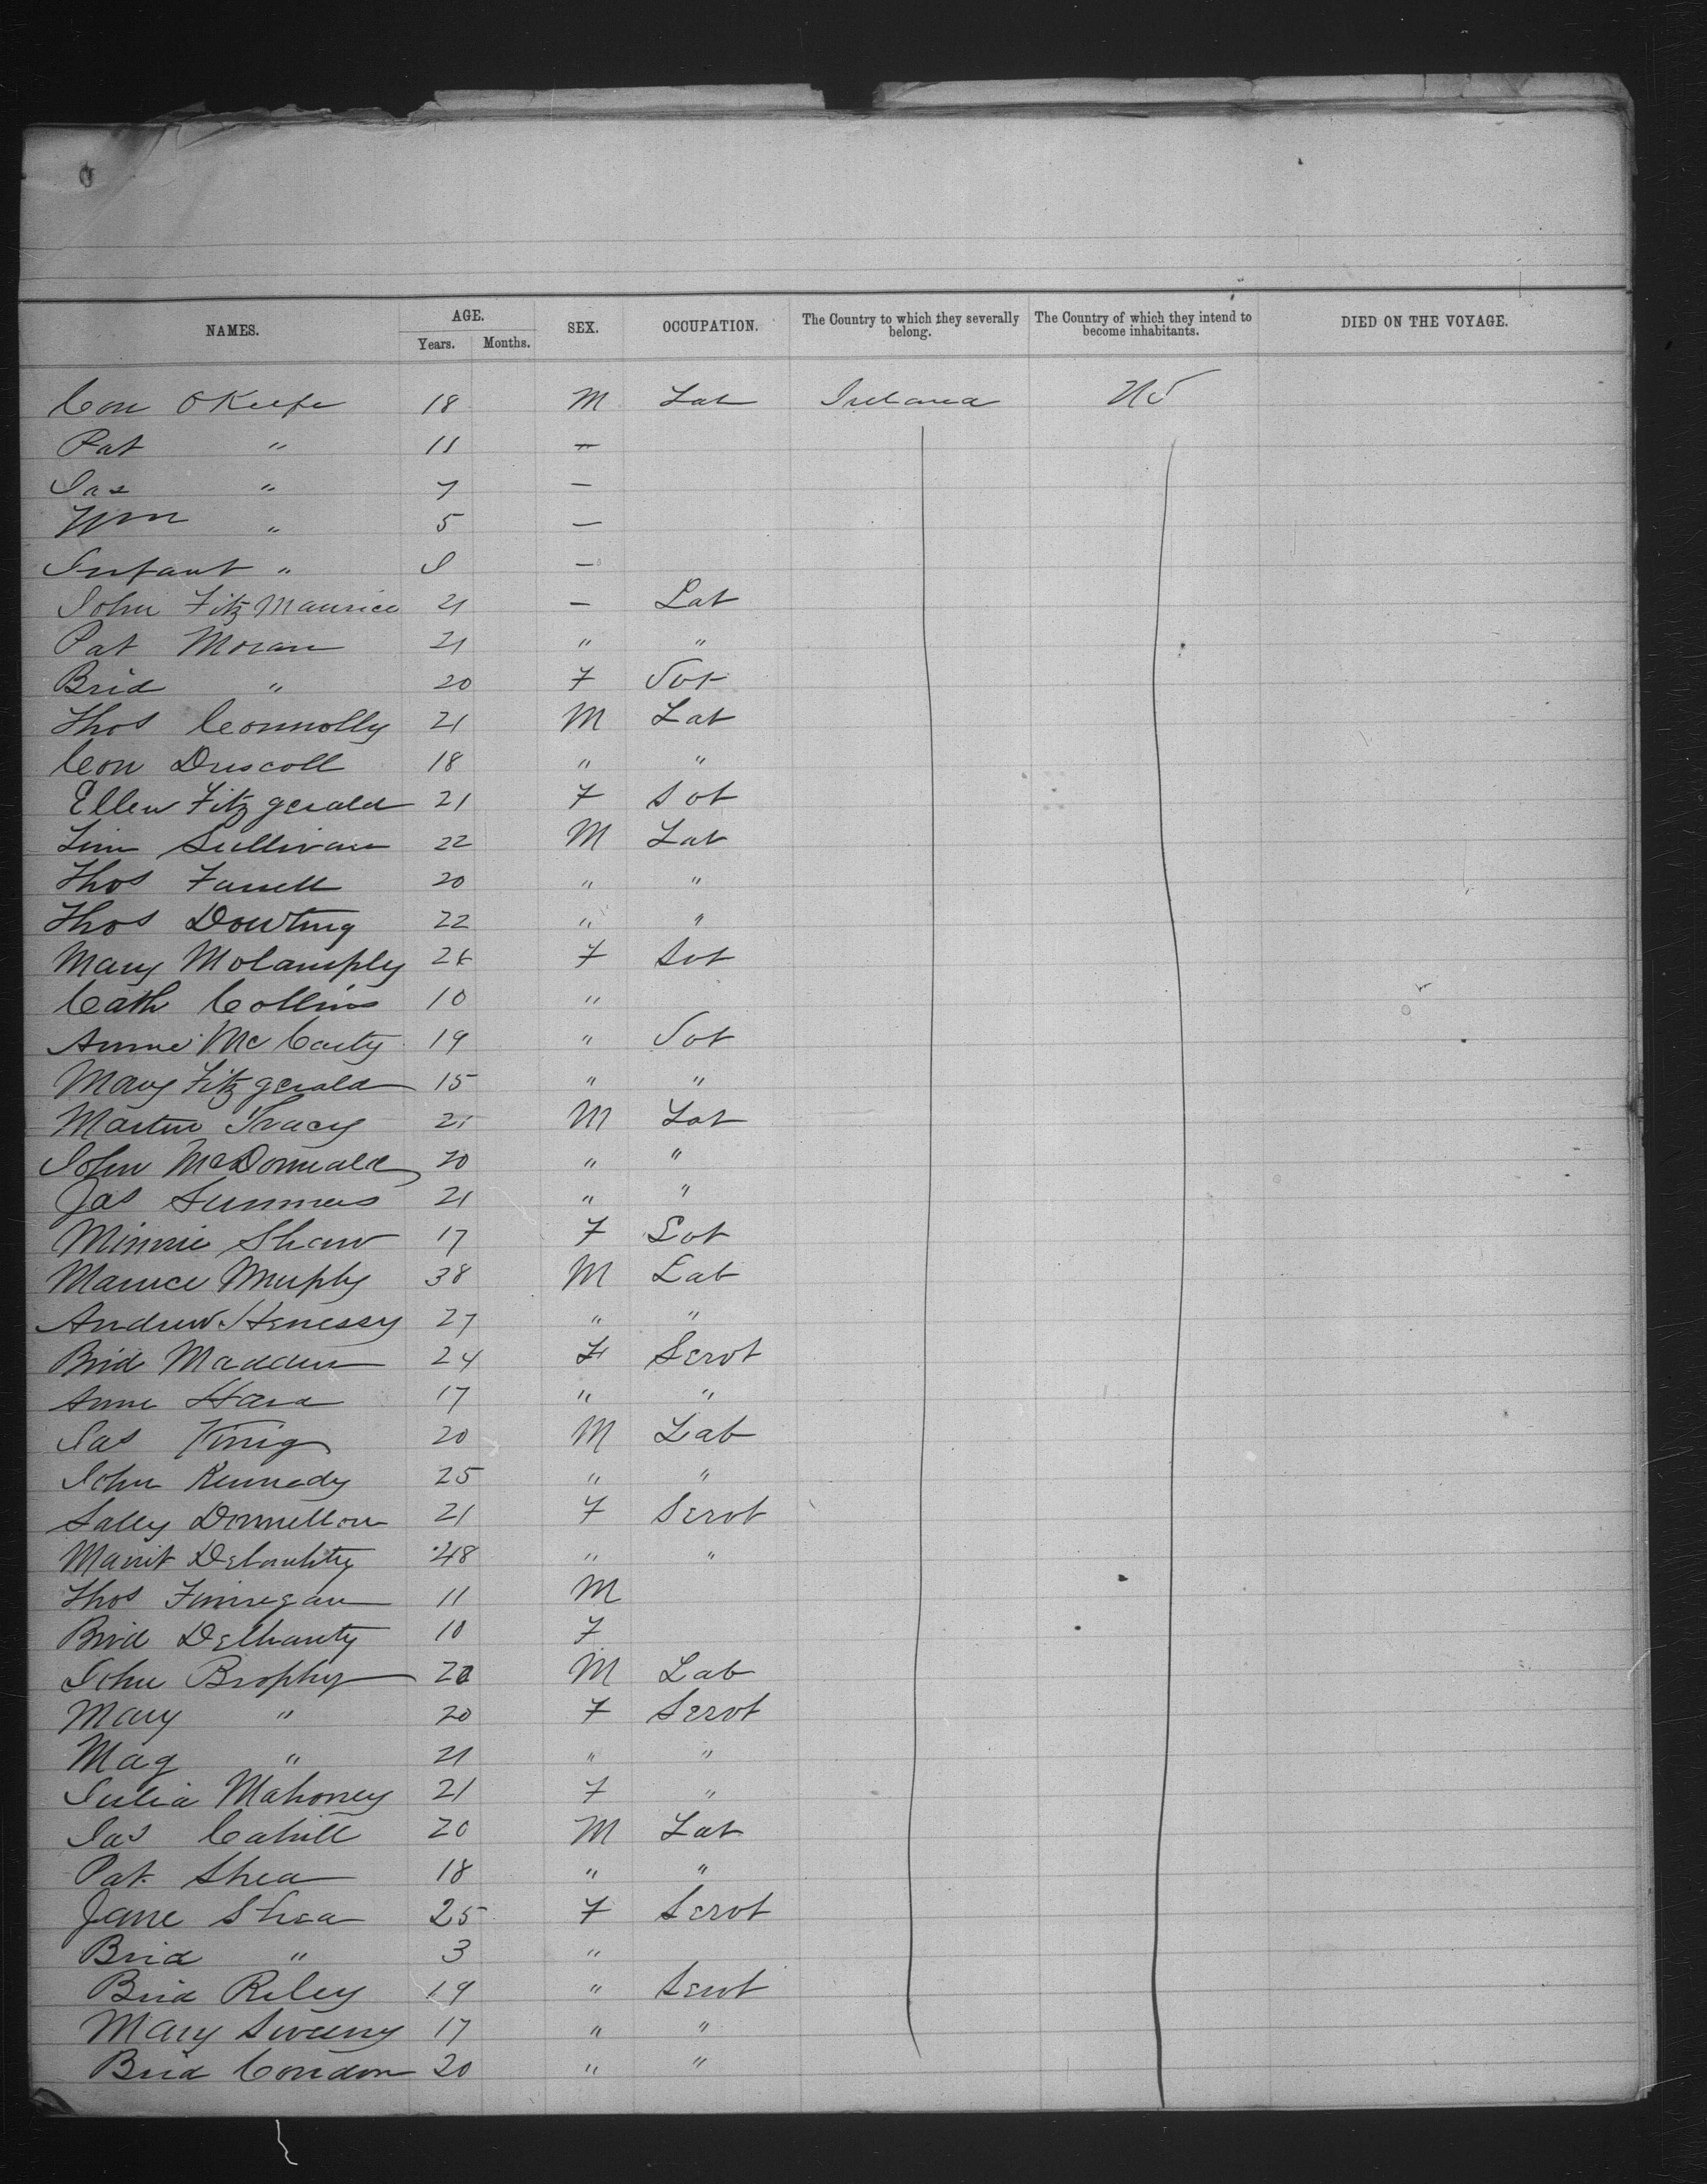 NAMES. AGE. Years. Months. SEX. OCCUPATION. The Country to which they severally belong. The Country of which they intend to become inhabitants. DIED ON THE VOYAGE.
Con O Keefe 18 M Lab Ireland US
Pat " 11 —
Jas " 7 —
Wm " 5 —
Infant " —
John FitzMaurice 21 — Lab
Pat Moran 21 " "
Brid " 20 F Svt
Thos Connolly 21 M Lab
Con Driscoll 18 " "
Ellen Fitzgerald 21 F Svt
Tim Sullivan 22 M Lab
Thos Farrell 20 " "
Thos Dowling 22 " "
Mary F Svt
Cath Collins 10 "
Annie McCarty 19 " Svt
Mary Fitzgerald 15 " "
Martin Tracy M Lab
John McDonnald 20 " "
Jas Summers 21 " "
Minnie Shaw 17 F Svt
Maurice Murphy 38 M Lab
Andrew Henessy 27 " "
Brid Madden 24 F Servt
Anne Hara 17 " "
Jas King 20 M Lab
John Kennedy 25 " "
Sally Donnellon 21 F Servt
48 " "
Thos Finnegan 11 M
Brid Delhanty 10 F
John Brophy M Lab
Mary " 20 F Servt
Mag " 21 " "
Julia Mahoney 21 F "
Jas Cahill 20 M Lab
Pat Shea 18 " "
Jane Shea 25 F Servt
Brid " 3 "
Brid Riley 19 " Servt
Mary Sweeny 17 " "
Brid Condon 20 " "